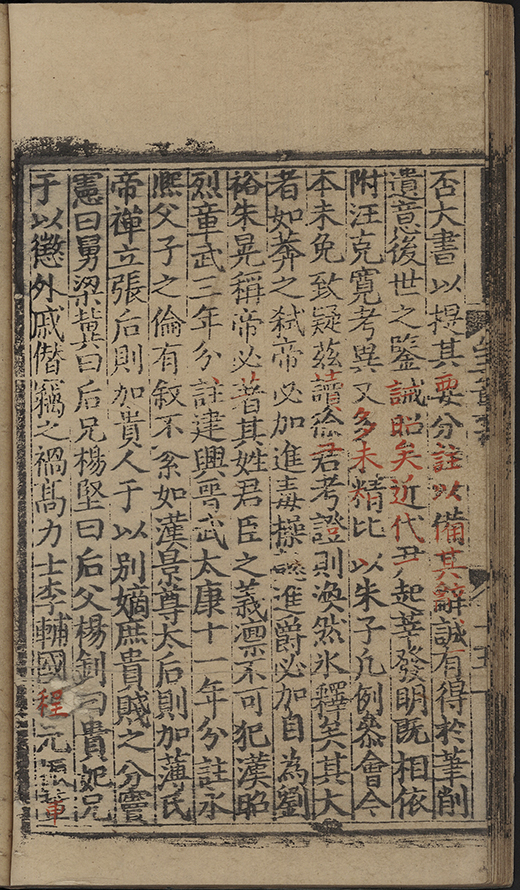 否大書以提其要分註以備其辭誠有得於筆削
遺意後世之鑒誡昭矣近代尹起莘發明既相依
附汪克寬考異又多未精比以朱子凡例叅會今
本未免致疑茲讀徐君考證則渙然氷釋矣其大
者如莽之弒帝必加進毒操之進爵必加自為劉
裕朱晃稱帝必著其姓君臣之義凛不可犯漢昭
烈章武三年分註建興晋武太康十一年分註永
熈父子之倫有叙不紊如漢景尊太后則加薄氏
帝禪立張后則加貴人于以別嫡庶貴賤之分竇
憲曰舅梁冀曰后兄楊堅曰后父楊釗曰貴妃兄
于以懲外戚僣竊之禍髙力士李輔國程元振軰